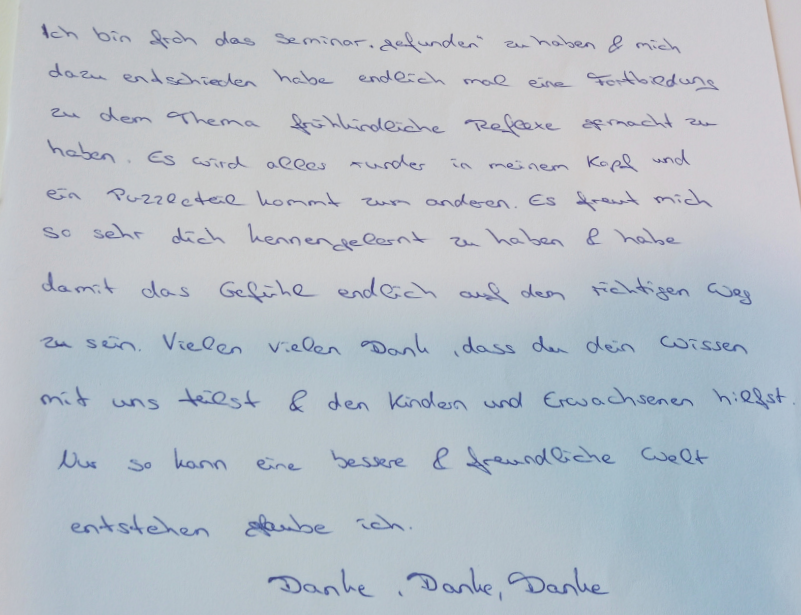 Ich bin froh das Seminar "gefunden" zu haben & mich
dazu entschieden habe endlich mal eine Fortbildung
zu dem Thema frühkindliche Reflexe gemacht zu
haben. Es wird alles runder in meinem Kopf und
ein Puzzleteil kommt zum anderen. Es freut mich
so sehr dich kennengelernt zu haben & habe
damit das Gefühl endlich auf dem richtigen Weg
zu sein. Vielen vielen Dank, dass du dein Wissen
mit uns teilst & den Kindern und Erwachsenen hilfst.
Nur so kann eine bessere & freundliche Welt
entstehen glaube ich.
Danke, Danke, Danke